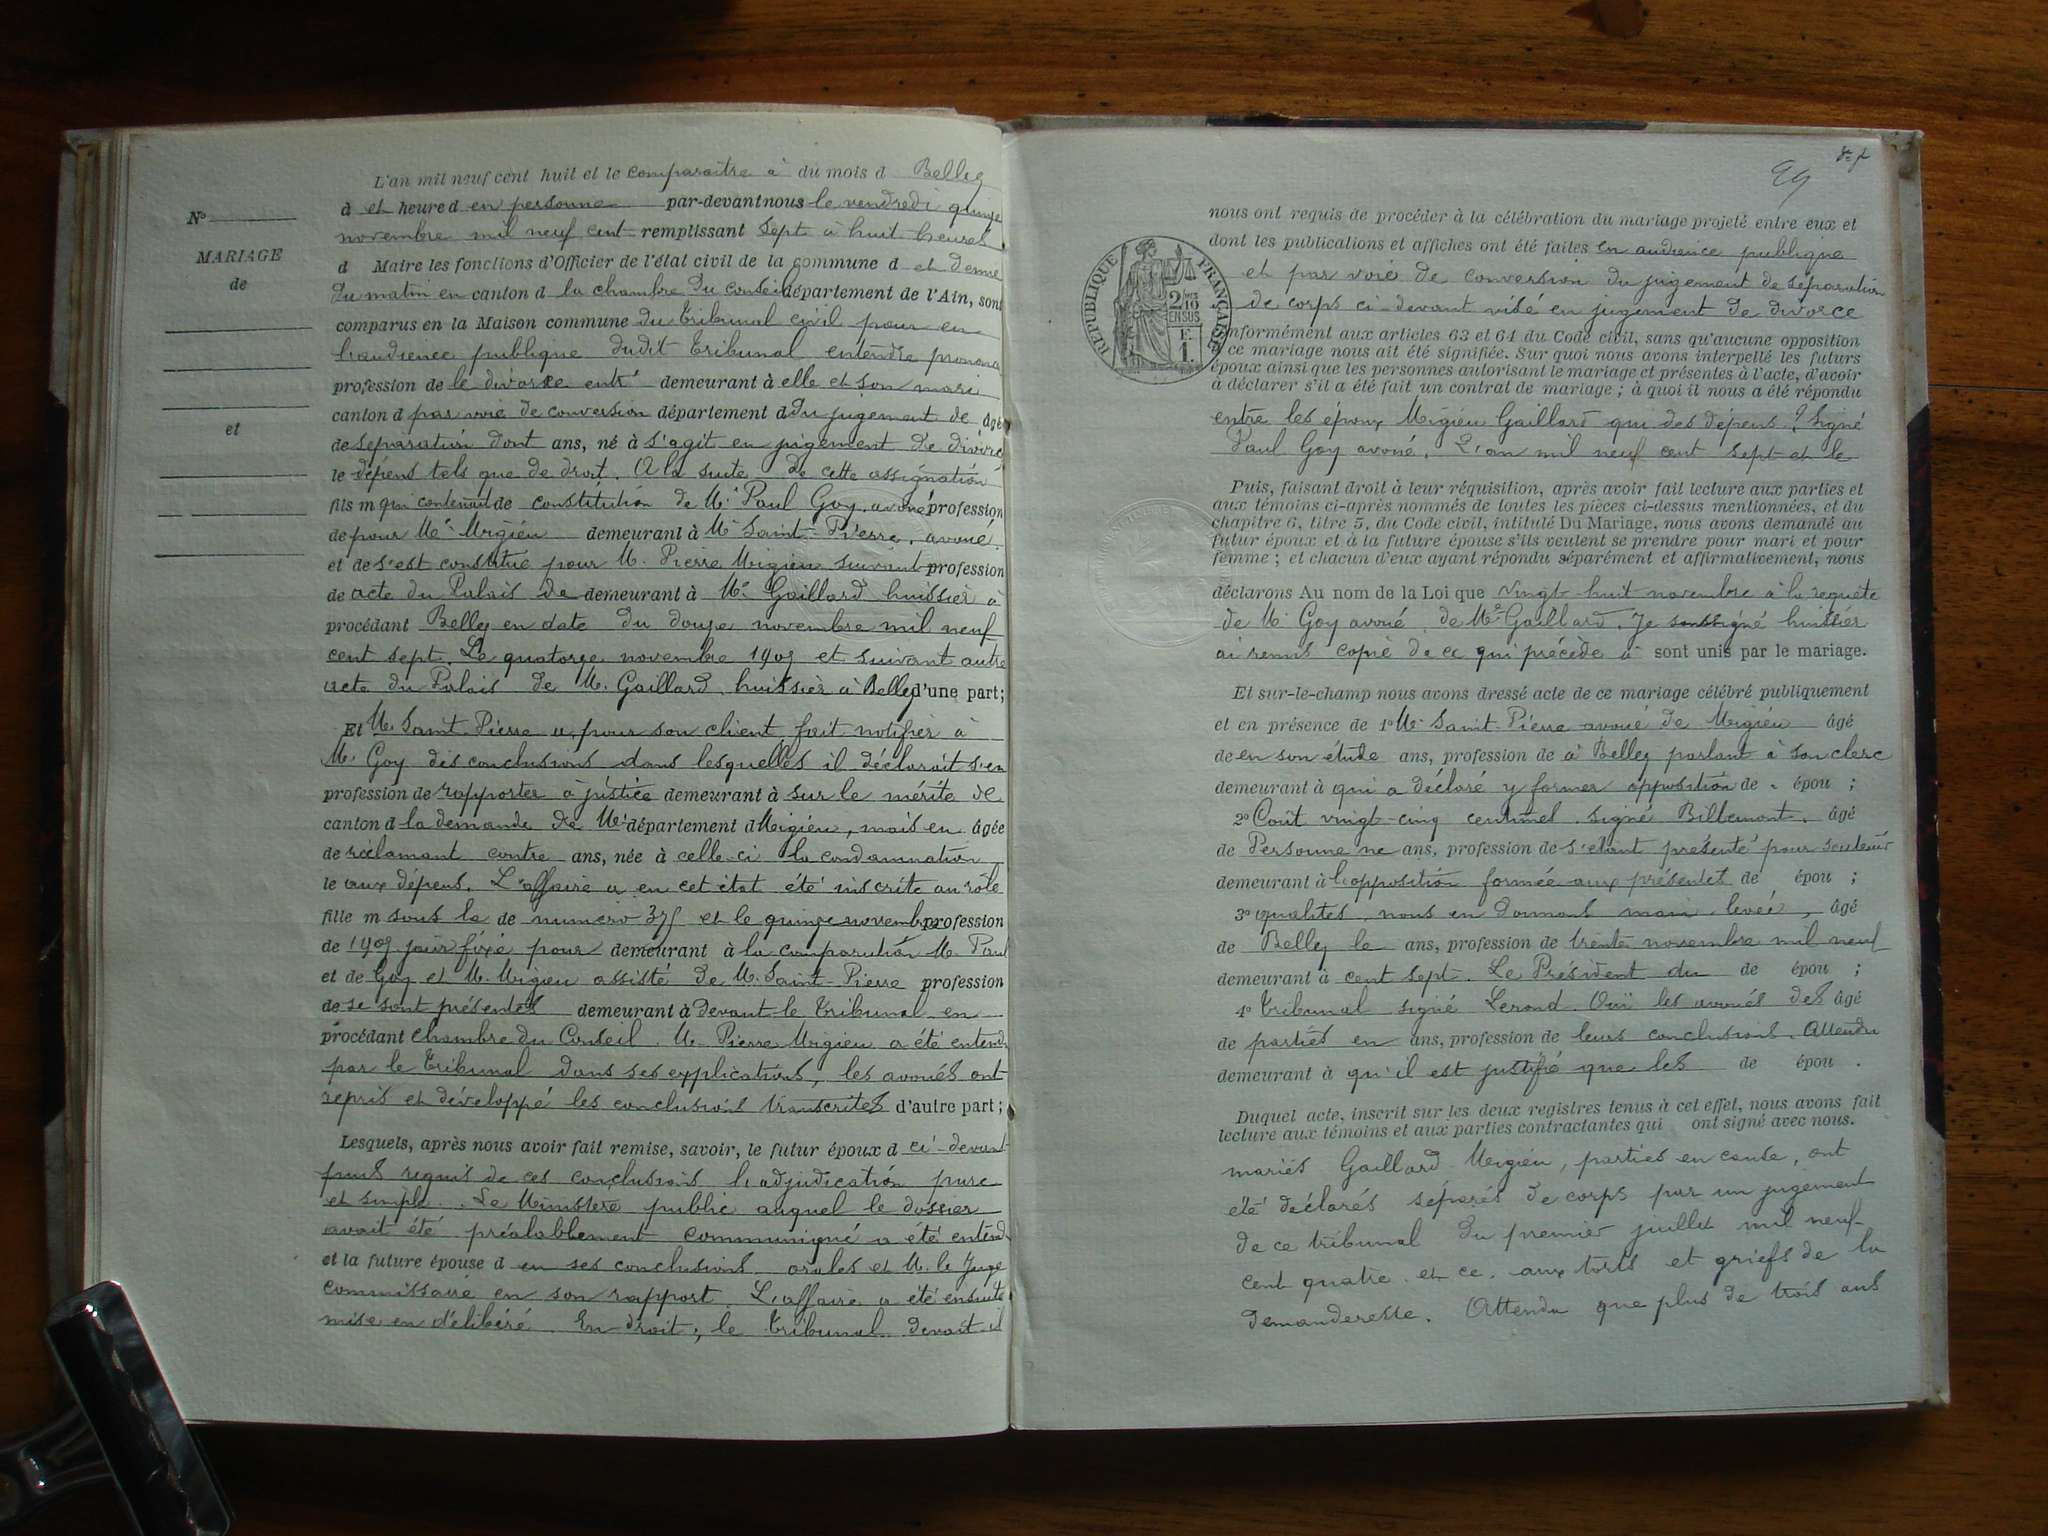 L'an mil neuf cent huit et le comparaître à du mois d Belley
à et heure d en personne par-devant nous le vendredi quinze
novembre mil neuf cent remplissant sept à huit heures
d Maire les fonctions d'Officier de l'état civil de la commune d et demie
du matin en canton d la chambre du conseil département de l'Ain, sont
comparus en la Maison commune du tribunal civil pour en
l'audience publique dudit tribunal entendre prononcer
profession de le divorce entre demeurant à elle et son mari
canton d par voie de conversion département d du jugement de âgé
de séparation dont ans, né à s'agit en jugement de divorce
le dépens tels que de droit. A la suite de cette assignation
fils m qui contenait de constitution de Me Paul Goy, avoué profession
de pour Me Migieu demeurant à Me Saint-Pierre, avoué
et de s'est constitué pour M. Pierre Migieu suivant profession
de acte du Palais de demeurant à Me Gaillard huissier à
procédant Belley en date du douze novembre mil neuf
cent sept. Le quatorze novembre 1907 et suivant autre
acte du Palais de M. Gaillard, huissier à Belley d'une part;
Et M. Saint-Pierre a, pour son client fait notifier à
M. Goy des conclusions dans lesquelles il déclarait s'en
profession de rapporter à justice demeurant à sur le mérite de
canton d la demande de Me département d Migieu, mais en âgée
de réclamant contre ans, née à celle-ci la condamnation
le aux dépens. L'affaire a en cet état été inscrite au rôle
fille m sous le de numéro 375 et le quinze novembre profession
de 1907 jour fixé pour demeurant à la comparution M. Paul
et de Goy et M. Migieu assisté de M. Saint-Pierre profession
de se sont présentés demeurant à devant le tribunal en
procédant chambre du Conseil. M. Pierre Migieu a été entendu
par le tribunal dans ses explications, les avoués ont
repris et développé les conclusions transcrites d'autre part;
Lesquels, après nous avoir fait remise, savoir, le futur époux d ci-devant
puis requis de ces conclusions l'adjudication pure
et simple. Le Ministère public auquel le dossier
avait été préalablement communiqué a été entendu
et la future épouse d en ses conclusions orales et M. le Juge
commissaire en son rapport. L'affaire a été ensuite
mise en délibéré. En droit; le tribunal devait-il
No
MARIAGE
de
et
nous ont requis de procéder à la célébration du mariage projeté entre eux et
dont les publications et affiches ont été faites en audience publique
et par voie de conversion du jugement de séparation
de corps ci-devant visé en jugement de divorce
nformément aux articles 63 et 64 du Code civil, sans qu'aucune opposition
à ce mariage nous ait été signifiée. Sur quoi nous avons interpellé les futurs
époux ainsi que les personnes autorisant le mariage et présentes à l'acte, d'avoir
à déclarer s'il a été fait un contrat de mariage; à quoi il nous a été répondu
entre les époux Migieu Gaillard qui des dépens? Signé
Paul Goy avoué. L'an mil neuf cent sept et le
Puis, faisant droit à leur réquisition, après avoir fait lecture aux parties et
aux témoins ci-après nommés de toutes les pièces ci-dessus mentionnées, et du
chapitre 6, titre 5, du Code civil, intitulé Du Mariage, nous avons demandé au
futur époux et à la future épouse s'ils veulent se prendre pour mari et pour
femme; et chacun d'eux ayant répondu séparément et affirmativement, nous
déclarons Au nom de la Loi que vingt-huit novembre à la requête
de M. Goy avoué de Me Gaillard. Je soussigné huissier
ai remis copie de ce qui précède à sont unis par le mariage.
Et sur-le-champ nous avons dressé acte de ce mariage célébré publiquement
et en présence de 1o Me Saint-Pierre avoué de Migieu âgé
de en son étude ans, profession de à Belley parlant à son clerc
demeurant à qui a déclaré y former opposition de épou ;
2o Coût vingt-cinq centimes. signé Billemont. âgé
de Personne ne ans, profession de s'étant présenté pour soutenir
demeurant à l'opposition formée aux présentes de épou ;
3o qualités, nous en donnons main-levée, âgé
de Belley le ans, profession de trente novembre mil neuf
demeurant à cent sept. Le Président du de épou ;
4o tribunal signé Lerond. Ouï les avoués des âgé
de parties en ans, profession de leurs conclusions. Attendu
demeurant à qu'il est justifié que les de épou .
Duquel acte, inscrit sur les deux registres tenus à cet effet, nous avons fait
lecture aux témoins et aux parties contractantes qui ont signé avec nous.
mariés Gaillard Migieu, parties en cause, ont
été déclarés séparés de corps par un jugement
de ce tribunal du premier juillet mil neuf
cent quatre et ce. aux torts et griefs de la
demanderesse. Attendu que plus de trois ans
RÉPUBLIQUE FRANÇAISE
2 10
EN SUS
E
1